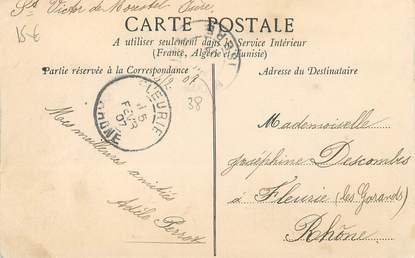 St Victor de Morestel Isère
15€
CARTE POSTALE
A utiliser seulement dans le Service Intérieur
(France, Algérie et Tunisie)
Partie réservée à la Correspondance
Adresse du Destinataire
38
FLEURIE
15
FEVR
07
RHONE
Mes meilleures amitiés
Adèle Perroy
Mademoiselle
Joséphine Descombes
à Fleurie (les Garands)
Rhône